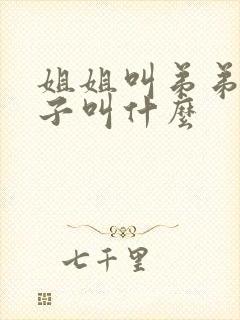 姐姐叫弟弟
子叫什麼
七千里